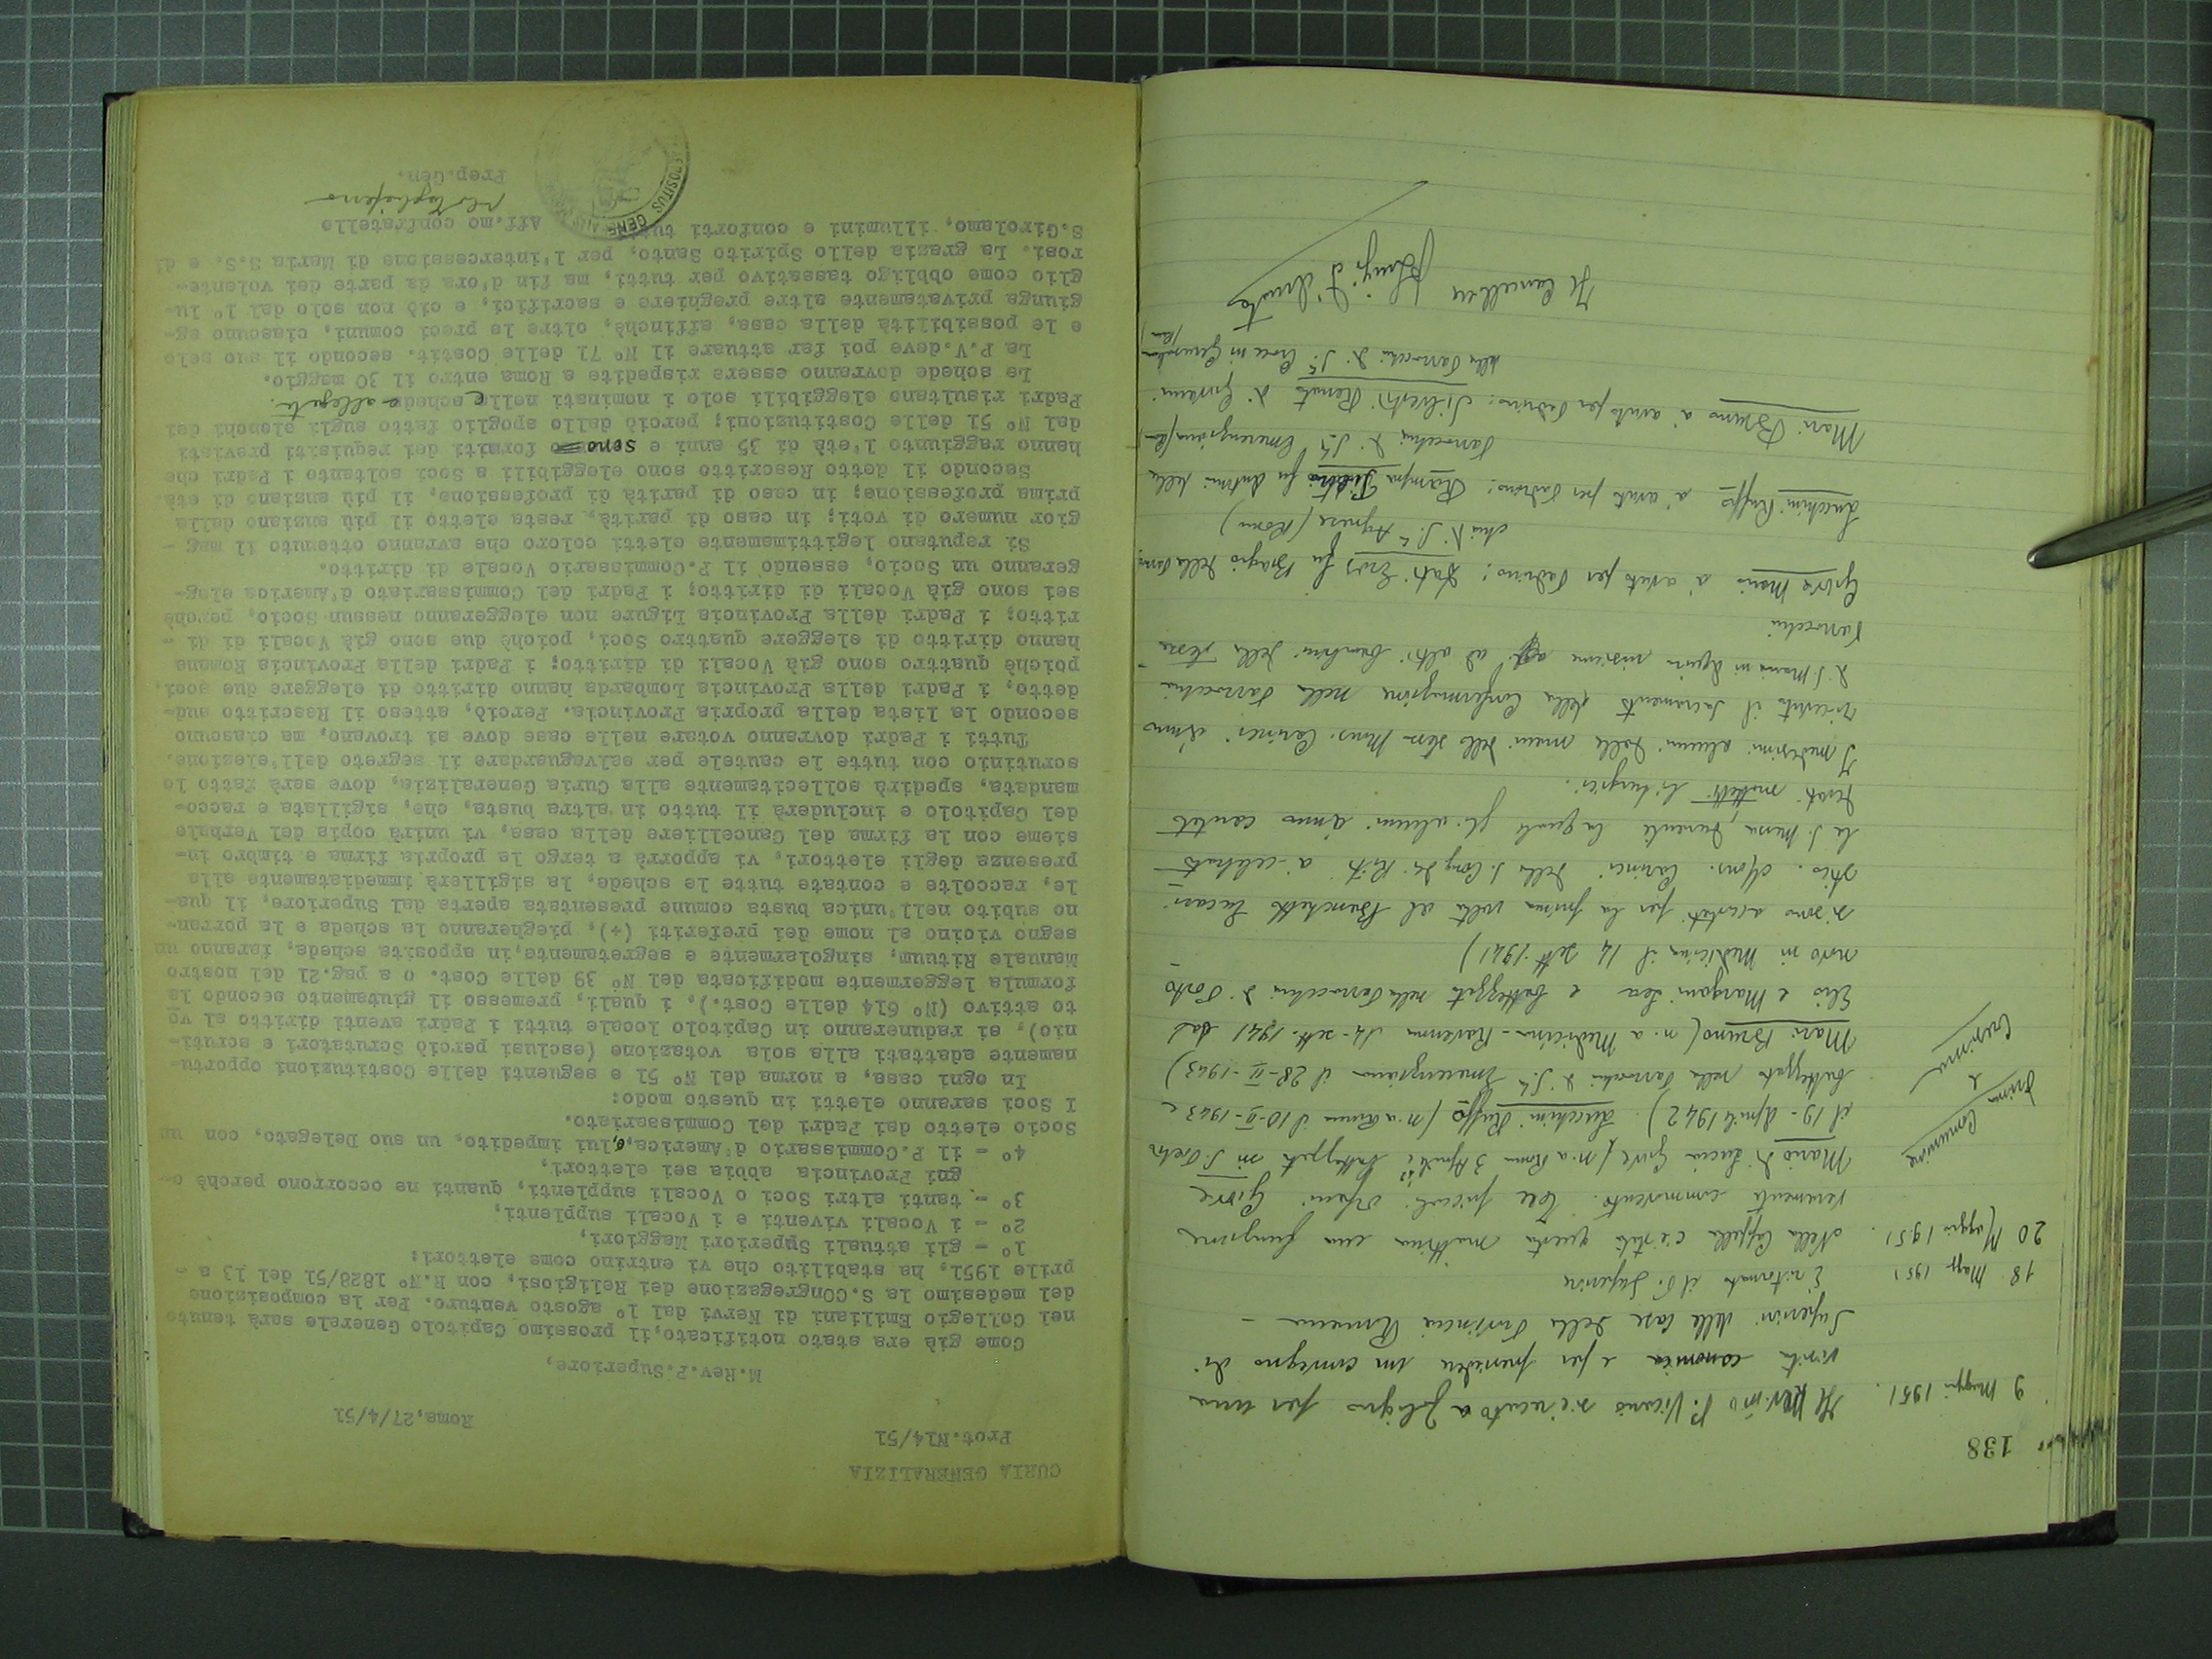 138
9 Maggio 1951. Il Rev.mo P. Vicario si è recato a Foligno per una
visita canonica e per presiedere un convegno di
Superiori delle Case della Provincia Romana -
18 Magg. 1951 È ritornato il P. Superiore
20 Maggio 1951. Nella Cappella c'è stata questa mattina una funzione
veramente commovente. Tre piccoli orfani: Giove
Prima Comunione e Cresima
Mario di Lucia Giove (n. a Roma 3 Aprile battezzato in S. Pietro
il 19 - Aprile 1942). Lucchini Ruffo (n. a Roma il 10-II-1943 e
battezzato nella Parrocchia di S.ta Emerenziana il 28-II-1943)
Mari Bruno (n. a Medicina - Ravenna 14 - sett. 1941 da
Elio e Margoni Lea e battezzato nella Parrocchia di Porto
novo in Medicina il 14 sett. 1941)
si sono accostati per la prima volta al Banchetto Eucari-
stico. Mons. Carinci della S. Cong. dei Riti à celebrato
la S. Messa, durante la quale gli alunni ànno cantato
mottetti liturgici.
I medesimi alunni dalle mani dello stesso Mons. Carinci ànno
ricevuto il Sacramento della Confermazione nella Parrocchia
di S. Maria in Aquiro insieme ad altri bambini della stessa
Parrocchia
Giove Mario à avuto per Padrino: Fati Eros fu Biagio della Parroc-
chia di S.ta Agnese (Roma)
Lucchini Ruffo à avuto per Padrino: Rampa fu Antonio della
Parrocchia di S.ta Emerenziana (Roma)
Mari Bruno à avuto per Padrino: Silvestri Renato di Giovanni
della Parrocchia di S.ta Croce in Gerusalemme
(Roma)
Il Cancelliere
CURIA GENERALIZIA
Prot.N14/51
Roma,27/4/51
M.Rev.P.Superiore,
Come già era stato notificato,il prossimo Capitolo Generale sarà tenuto
nel Collegio Emiliani di Nervi dal 1° agosto venturo. Per la composizione
del medesimo la S.COngregazione dei Religiosi, con R.N° 1828/51 del 13 a -
prile 1951, ha stabilito che vi entrino come elettori:
1° - gli attuali Superiori Maggiori,
2° - i Vocali viventi e i Vocali supplenti,
3° - tanti altri Soci o Vocali supplenti, quanti ne occorrono perchè o-
gni Provincia abbia sei elettori,
4° - il P.Commissario d'America,o,lui impedito, un suo Delegato, con un
Socio eletto dai Padri del Commissariato.
I Soci saranno eletti in questo modo:
In ogni casa, a norma del N° 51 e seguenti delle Costituzioni opportu-
namente adattati alla sola votazione (esclusi perciò Scrutatori e scruti-
nio), si raduneranno in Capitolo locale tutti i Padri aventi diritto al vo
to attivo (N° 614 delle Cost.), i quali, premesso il giuramento secondo la
formula leggermente modificata del N° 39 delle Cost. o a pag.21 del nostro
Manuale Rituum, singolarmente e segretamente,in apposita scheda, faranno un
segno vicino al nome dei preferiti (+), piegheranno la scheda e la porran-
no subito nell'unica busta comune presentata aperta dal Superiore, il qua-
le, raccolte e contate tutte le schede, la sigillerà immediatamente alla
presenza degli elettori, vi apporrà a tergo la propria firma e timbro in-
sieme con la firma del Cancelliere della casa, vi unirà copia del Verbale
del Capitolo e includerà il tutto in altra busta, che, sigillata e racco-
mandata, spedirà sollecitamente alla Curia Generalizia, dove sarà fatto lo
scrutinio con tutte le cautele per salvaguardare il segreto dell'elezione.
Tutti i Padri dovranno votare nelle case dove si trovano, ma ciascuno
secondo la lista della propria Provincia. Perciò, atteso il Rescritto sud-
detto, i Padri della Provincia Lombarda hanno diritto di eleggere due soci,
poichè quattro sono già Vocali di diritto; i Padri della Provincia Romana
hanno diritto di eleggere quattro Soci, poichè due sono già Vocali di di -
ritto; i Padri della Provincia Ligure non eleggeranno nessun Socio, perchè
sei sono già Vocali di diritto; i Padri del Commissariato d'America eleg-
geranno un Socio, essendo il P.Commissario Vocale di diritto.
Si reputano legittimamente eletti coloro che avranno ottenuto il mag -
gior numero di voti; in caso di parità, resta eletto il più anziano dalla
prima professione; in caso di parità di professione, il più anziano di età.
Secondo il detto Rescritto sono eleggibili a Soci soltanto i Padri che
hanno raggiunto l'età di 35 anni e sono forniti dei requisiti previsti
dal N° 51 delle Costituzioni; perciò dallo spoglio fatto sugli elenchi dei
Padri risultano eleggibili solo i nominati nelle schede allegate.
Le schede dovranno essere rispedite a Roma entro il 30 maggio.
La P.V.deve poi far attuare il N° 71 delle Costit. secondo il suo zelo
e le possibilità della casa, affinchè, oltre le preci comuni, ciascuno ag-
giunga privatamente altre preghiere e sacrifici, e ciò non solo dal 1° lu-
glio come obbligo tassativo per tutti, ma fin d'ora da parte dei volente-
rosi. La grazia dello Spirito Santo, per l'intercessione di Maria S.S. e di
S.Girolamo, illumini e conforti tutti. Aff.mo confratello
Prep.Gen.